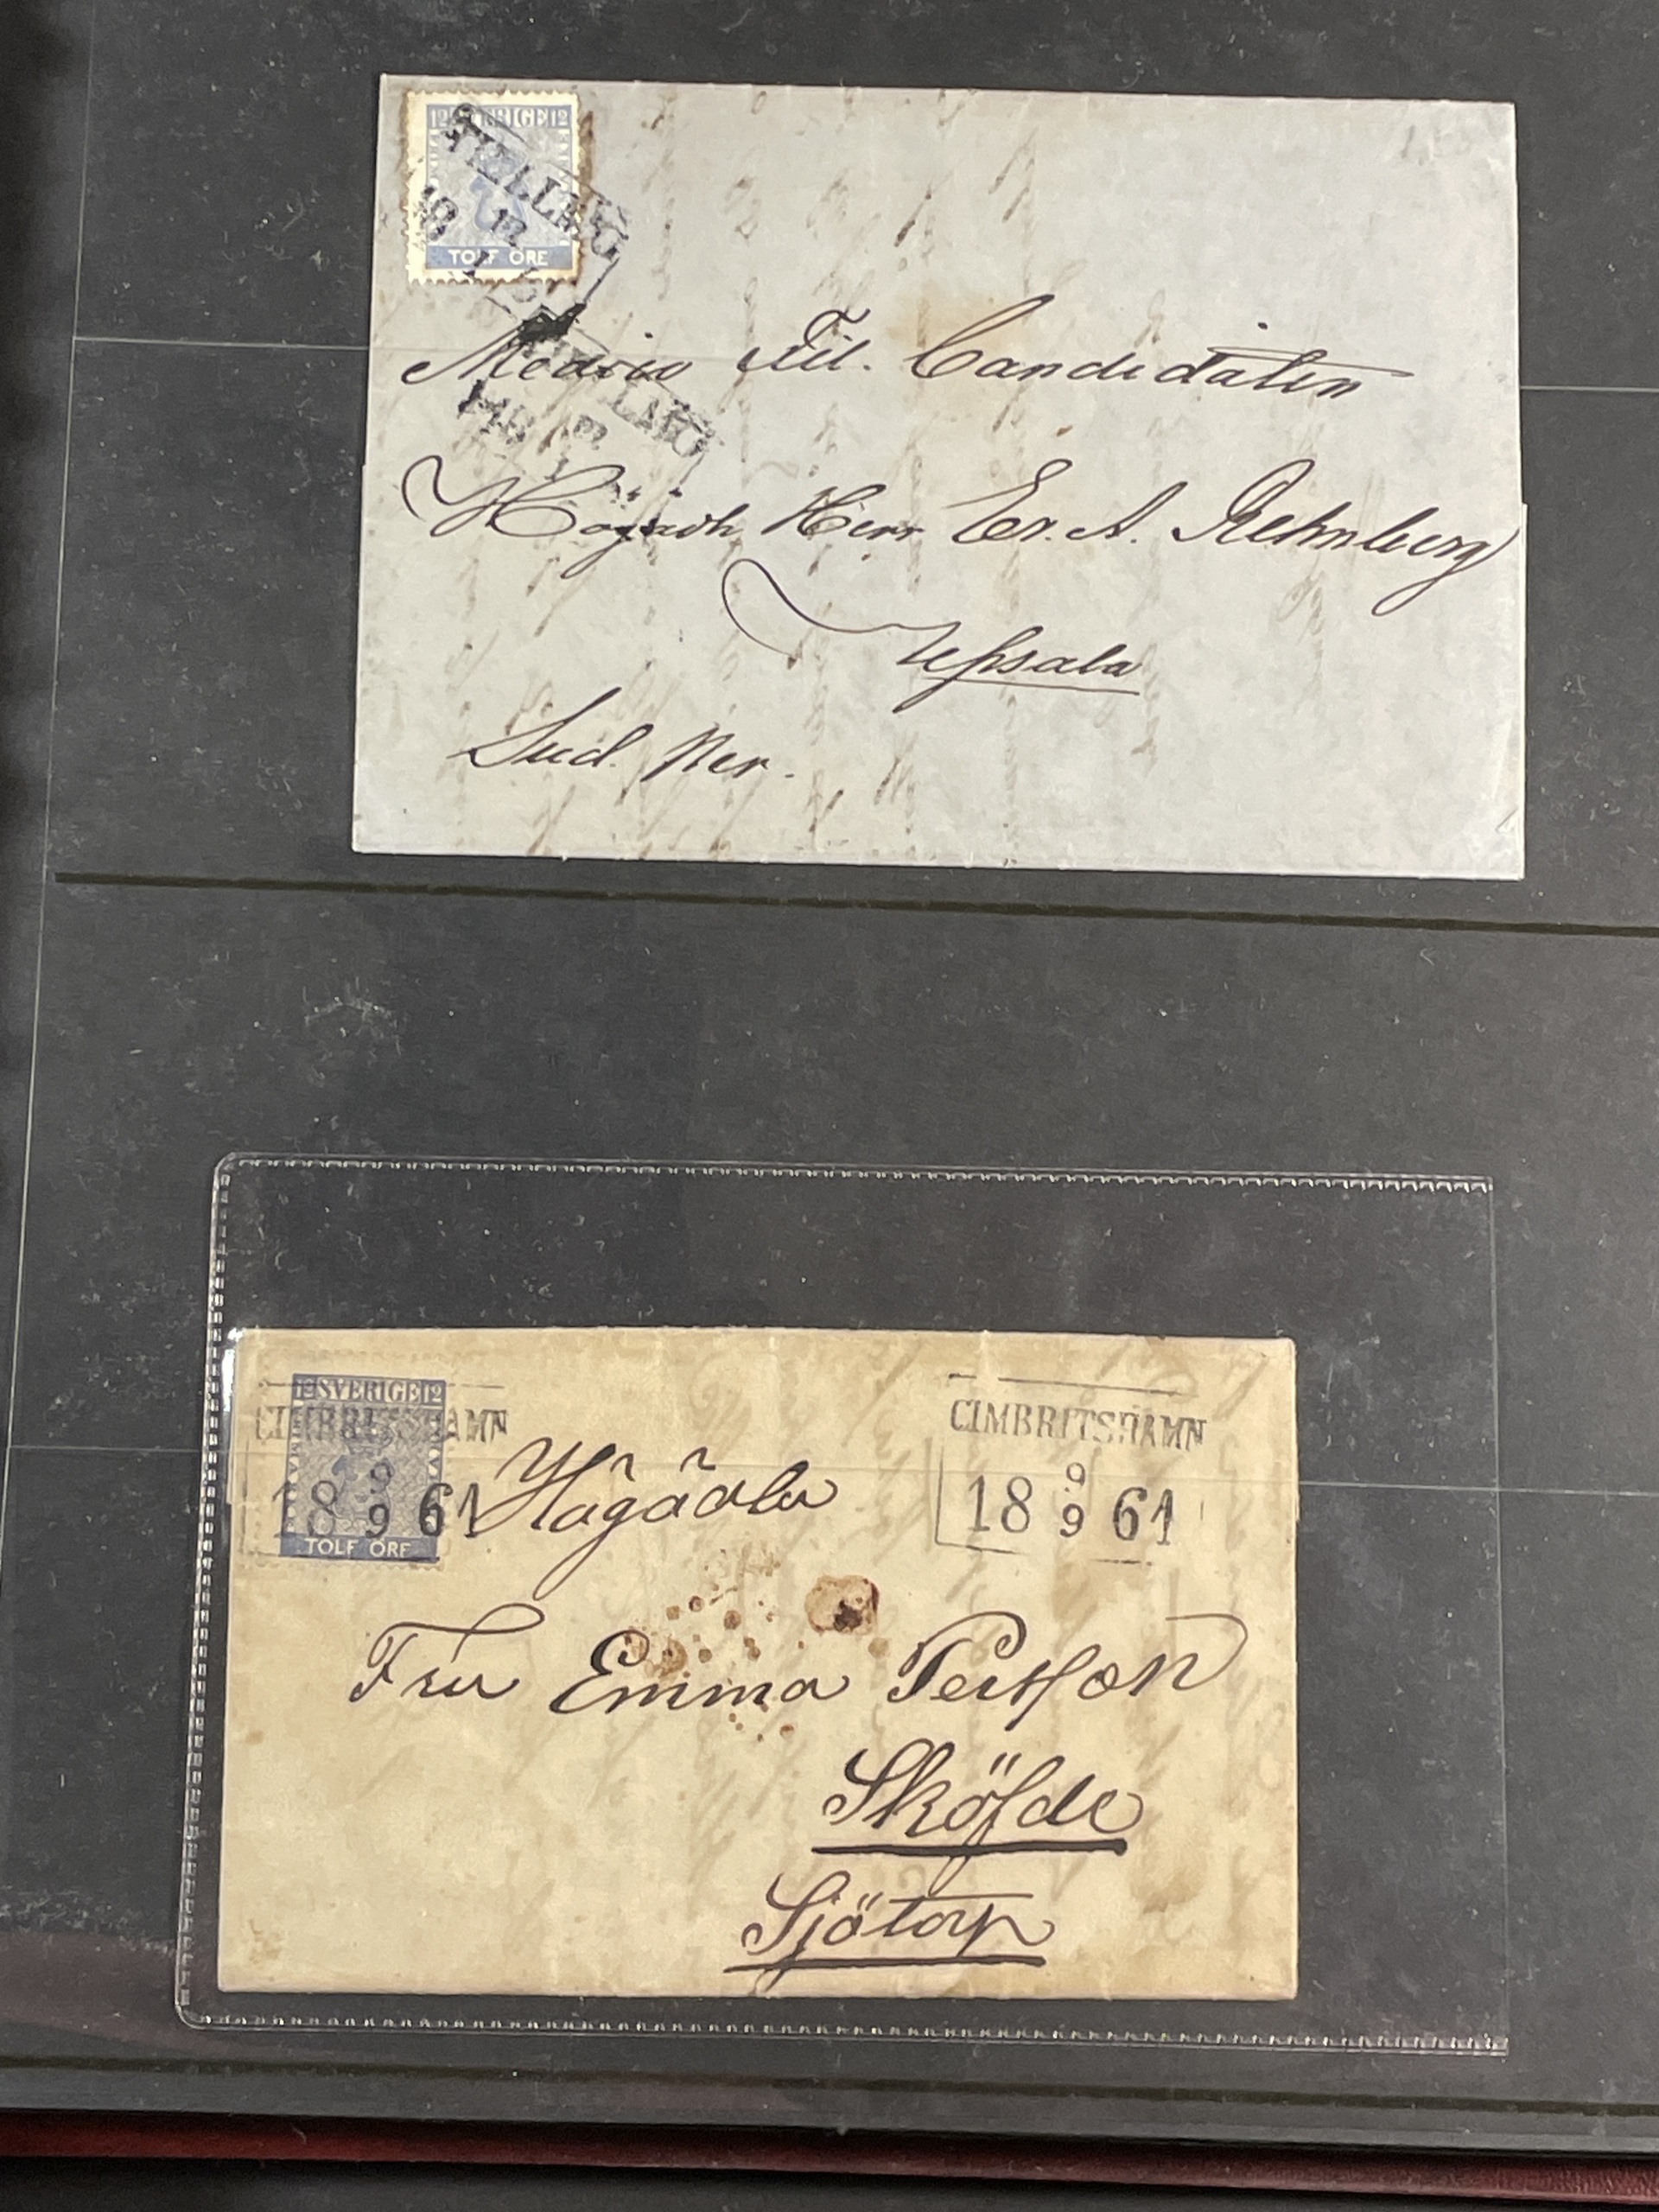 12 SVERIGE 12
TOLF ÖRE
18 12
Medico Fil. Candidaten
18 12
Herr Er. A. Rehnberg
Upsala
12 SVERIGE 12
CIMBRITSHAMN
18 9 9 61
TOLF ÖRE
CIMBRITSHAMN
18 9 9 61
Högädla
Fru Emma Persson
Sköfde
Sjötorp